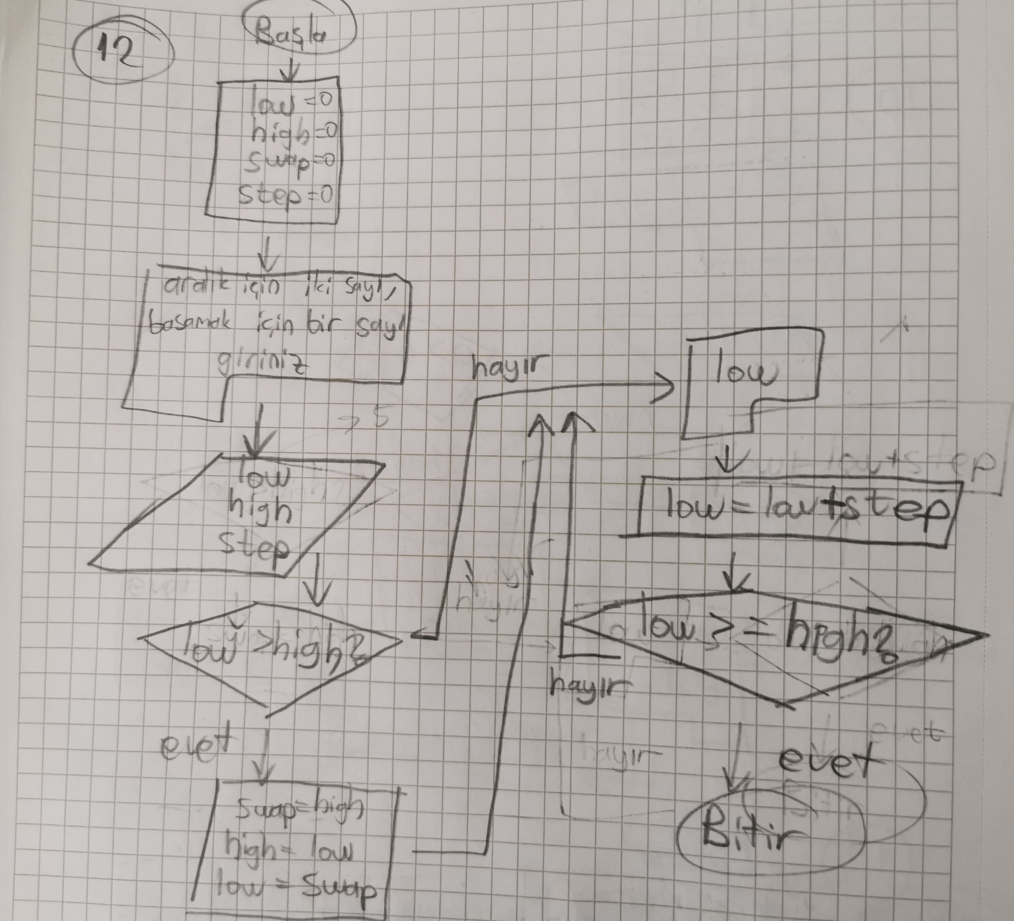 12
Başla
low=0
high=0
swap=0
step=0
aralık için iki sayı,
basamak için bir sayı
giriniz
low
high
step
low >high?
hayır
evet
swap=high
high= low
low = swap
low
low=low+step
low >= high?
hayır
evet
Bitir